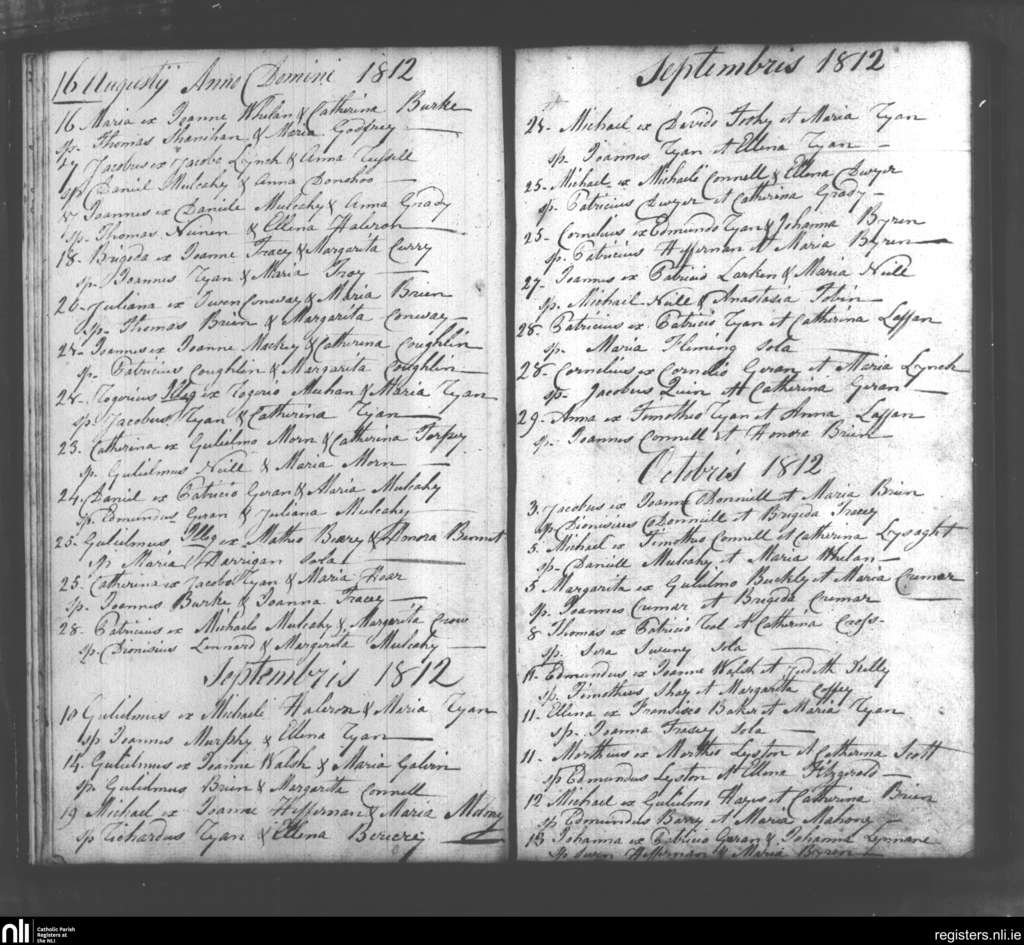 16 Augustÿ Anno Domini 1812
16 Maria ex Joanne Whelan & Catherina Burke
sp. Thomas Shanihan & Maria Godfrey
17 Jacobus ex Jacobo Lynch & Anna
sp Daniel Mulcahy & Anna Donohoo
Joannes ex Daniele Mulcahy & Anna Grady
sp. Thomas Nunen & Ellena Haleron
18. Brigida ex Joanne Tracey & Margarita Curry
sp. Joannes Ryan & Maria Troy
20 Juliana ex Owen Conway & Maria Brien
sp. Thomas Brien & Margarita Conway
Joannes ex Joanne Mackey & Catherina Coughlin
sp. Patricius Coughlin & Margarita Coughlin
Rogerius Illeg ex Rogerio Meehan & Maria Ryan
sp. Jacobus Ryan & Catherina Ryan
23. Catherina ex Gulielmo Morn & Catherina Torpey
sp. Gulielmus Neill & Maria Morn
24 Daniel ex Patricio Geran & Maria Mulcahy
sp. Edmundus Geran & Juliana Mulcahy
25. Gulielmus Illeg ex Matheo Beary & Honora Bennet
sp Maria Harrigan Sola
25. Catherina ex Jacobo Ryan & Maria Hoar
sp. Joannes Burke & Joanna Tracey
28. Patricius ex Michaele Mulcahy & Margarita Crowe
sp. Dionisius Lennard & Margarita Mulcahy
Septembris 1812
10 Gulielmus ex Michaele Haleron & Maria Ryan
sp Joannes Murphy & Ellena Ryan
14. Gulielmus ex Joanne Walsh & Maria Galvin
sp. Gulielmus Brien & Margarita Connell
19 Michael ex Joanne Heffernan & Maria Molony
sp Richardus Ryan & Ellena
Septembris 1812
Michael ex Davido Toohy et Maria Ryan
sp. Joannes Ryan et Ellena Ryan
25. Michael ex Michaele Connell & Ellena Dwyer
sp. Patricius Dwyer et Catherina Grady
25. Cornelius ex Edmundo Ryan & Johanna Byren
sp. Patricius Heffernan et Maria Byren
27. Joannes ex Patricio Larken & Maria Neill
sp. Michael Neill & Anastasia Tobin
28. Patricius ex Patricio Ryan et Catherina Laffan
sp. Maria Fleming Sola
28. Cornelius ex Cornelio Geran et Maria Lynch
sp. Jacobus Quin et Catherina Geran
29. Anna ex Timotheo Ryan et Anna Laffan
sp. Joannes Connell et Honora Brien
Octobris 1812
3. Jacobus ex Joanne Donnell et Maria Brien
sp Dionisius Donnell et Brigida Tracey
5. Michael ex Timotheo Connell et Catherina Lysaght
sp. Daniell Mulcahy et Maria Whelan
5 Margarita ex Gulielmo Buckly et Maria Cremar
sp. Joannes Cremar et Brigida Cremar
8 Thomas ex Patricio Teel et Catherina Cross
sp. Sera Sweeny Sola
11. Edmundus ex Joanne Walsh et Judith Kelly
sp. Timotheus Shay et Margarita Coffey
11. Ellena ex Francisco Baker et Maria Ryan
sp. Joanna Trasey Sola
11. Mortheus ex Mortheo Lyston et Catherina Scott
sp Edmundus Lyston et Ellena Fitzgerald
12 Michael ex Gulielmo Hayes et Catherina Brien
sp Edmundus Barry et Maria Mahony
13 Johanna ex Patricio Geran & Johanna Lynnane
sp. Owen Heffernan & Maria Byren
nli Catholic Parish
Registers at
the NLI
registers.nli.ie